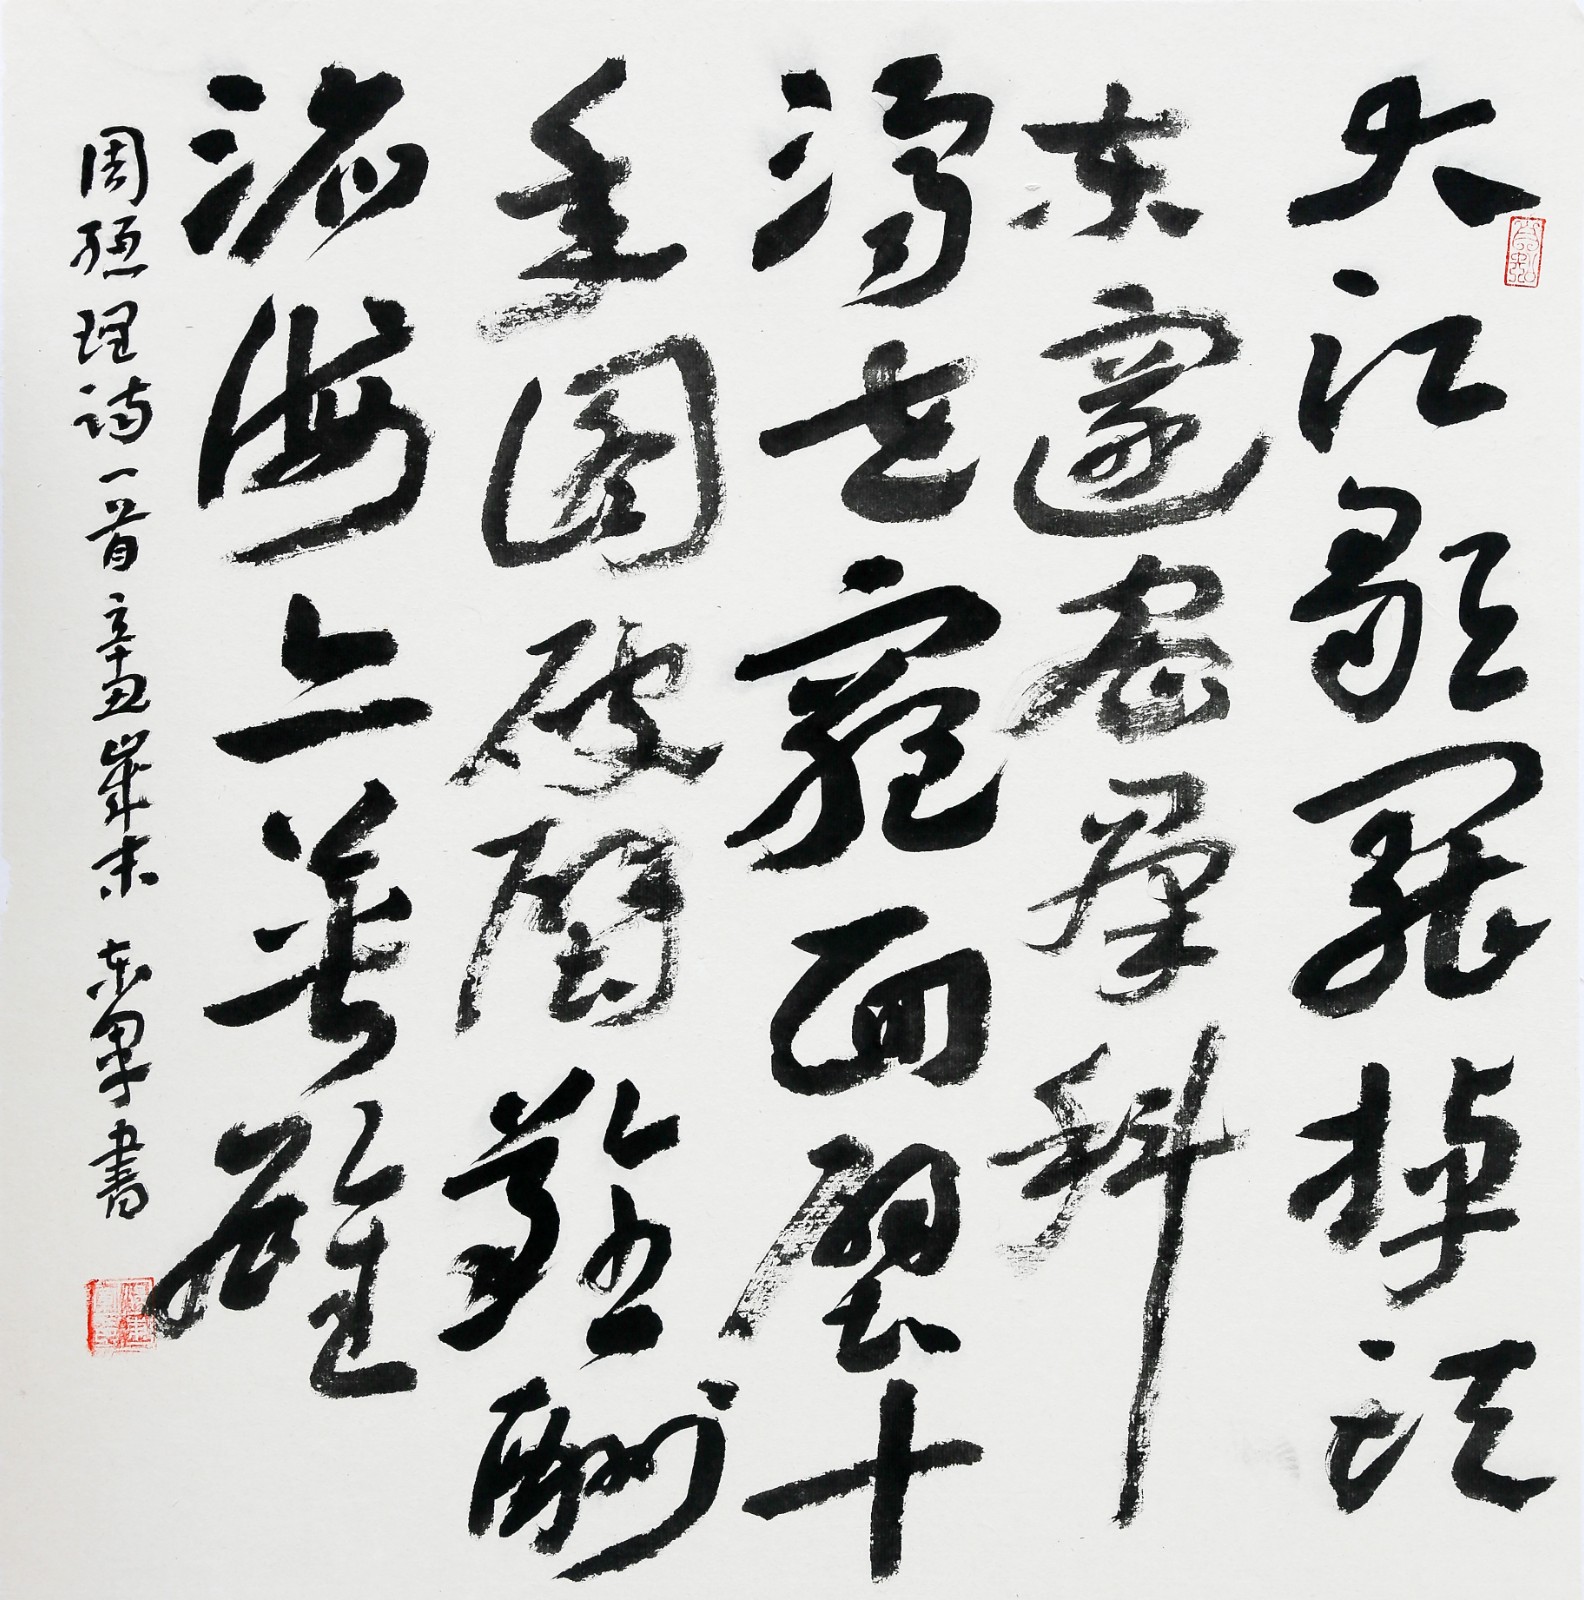 大江歌罢掉头
东邃密群科
济世穷面壁十
年图破壁难酬
蹈海亦英雄
周恩理诗一首辛丑岁末东军書